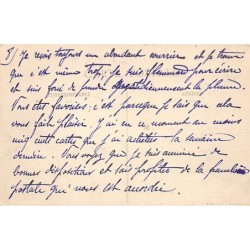 5/ Je reçois toujours un abondant courrier et je trouve
que c'est même trop, je suis flemmard pour écrire
et suis forcé de prendre la plume.
Vous êtes favorisée, c'est parceque je sais que cela
vous fait plaisir. J'ai en ce moment au moins
cartes que j'ai achetées la semaine
dernière. Vous voyez que je suis animé de
bonnes dispositions et fais profiter de la franchise
postale qui nous est accordée.